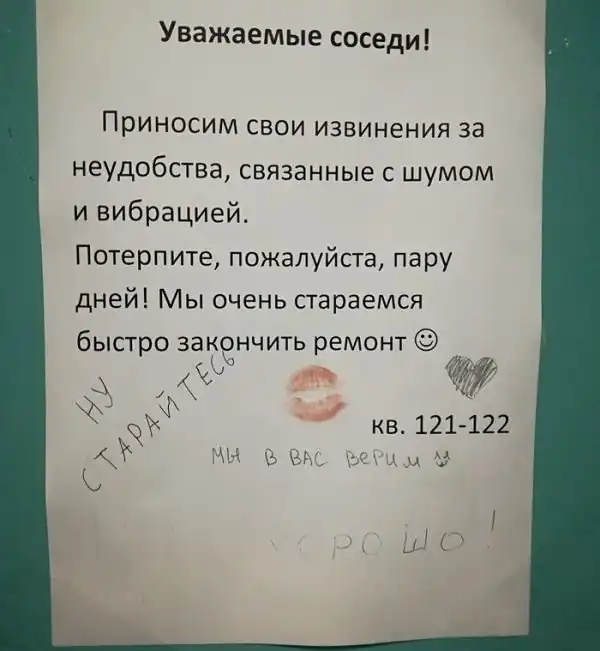 Уважаемые соседи!
Приносим свои извинения за
неудобства, связанные с шумом
и вибрацией.
Потерпите, пожалуйста, пару
дней! Мы очень стараемся
быстро закончить ремонт ☺
кв. 121-122
НУ
СТАРАЙТЕСЬ
МЫ В ВАС ВЕРИМ
ХОРОШО!